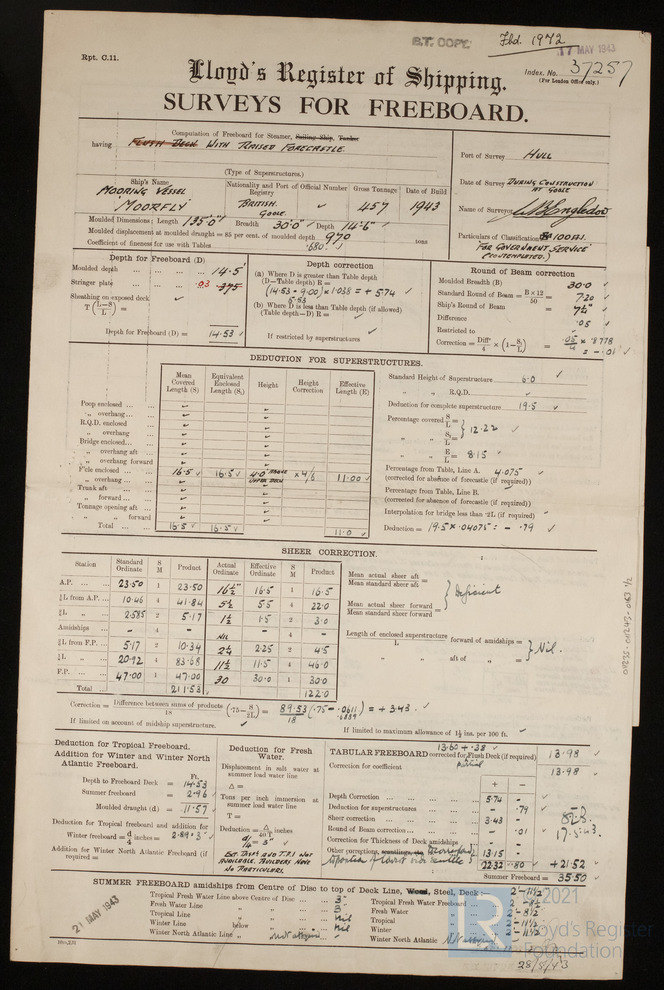 B.T. COPY.
Fbd. 1972
17 MAY 1943
Rpt. C.11.
Lloyd's Register of Shipping.
Index. No. 37257
(For London Office only.)
SURVEYS FOR FREEBOARD.
Computation of Freeboard for Steamer, Sailing Ship, Tanker
having FLUSH DECK WITH RAISED FORECASTLE
(Type of Superstructures.)
Port of Survey HULL
Date of Survey DURING CONSTRUCTION AT GOOLE
Name of Surveyor
Particulars of Classification 100A1.
"FOR GOVERNMENT SERVICE"
(CONTEMPLATED.)
Ship's Name Nationality and Port of Registry Official Number Gross Tonnage Date of Build
MOORING VESSEL "MOORFLY" BRITISH. GOOLE. 457 1943
Moulded Dimensions: Length 135'0" Breadth 30'0" Depth 14'6"
Moulded displacement at moulded draught = 85 per cent. of moulded depth 970 tons
Coefficient of fineness for use with Tables .680
Depth for Freeboard (D)
Moulded depth 14.5'
Stringer plate .03 375
Sheathing on exposed deck
T (L−S / L) =
Depth for Freeboard (D) = 14.53
Depth correction
(a) Where D is greater than Table depth
(D−Table depth) R =
(14.53 - 9.00) × 1.038 = + 5.74
5.53
(b) Where D is less than Table depth (if allowed)
(Table depth−D) R =
If restricted by superstructures
Round of Beam correction
Moulded Breadth (B) 30.0
Standard Round of Beam = B×12 / 50 = 7.20
Ship's Round of Beam = 7¼"
Difference .05
Restricted to
Correction = Diff / 4 × (1−S/L) = .05 / 4 × .8778
= -.01
DEDUCTION FOR SUPERSTRUCTURES.
Mean Covered Length (S) Equivalent Enclosed Length (S₁) Height Height Correction Effective Length (E)
Poop enclosed
" overhang
R.Q.D. enclosed
" overhang
Bridge enclosed
" overhang aft
" overhang forward
F'cle enclosed 16.5 16.5 4.0' ABOVE UPPER DECK × 4/6 11.00
" overhang
Trunk aft
" forward
Tonnage opening aft
" " forward
Total 16.5 16.5 11.0
Standard Height of Superstructure 6.0
" " R.Q.D.
Deduction for complete superstructure 19.5
Percentage covered S/L =
" " S₁/L = } 12.22
" " E/L = 8.15
Percentage from Table, Line A. 4.075
(corrected for absence of forecastle (if required))
Percentage from Table, Line B.
(corrected for absence of forecastle (if required))
Interpolation for bridge less than .2L (if required)
Deduction = 19.5 × .04075 = - .79
SHEER CORRECTION.
Station Standard Ordinate S M Product Actual Ordinate Effective Ordinate S M Product
A.P. 23.50 1 23.50 16½" 16.5 1 16.5
⅙L from A.P. 10.46 4 41.84 5½ 5.5 4 22.0
⅓L " 2.585 2 5.17 1½ 1.5 2 3.0
Amidships - 4 - NIL - 4 -
⅓L from F.P. 5.17 2 10.34 2¼ 2.25 2 4.5
⅙L " 20.92 4 83.68 11½ 11.5 4 46.0
F.P. 47.00 1 47.00 30 30.0 1 30.0
Total 211.53 122.0
Mean actual sheer aft
Mean standard sheer aft =
Mean actual sheer forward
Mean standard sheer forward = } Deficient
Length of enclosed superstructure / L forward of amidships =
" " aft of " = } Nil.
Correction = Difference between sums of products / 18 (.75−S/2L) = 89.53 / 18 (.75 − .0611) = + 3.43
.6889
If limited on account of midship superstructure.
If limited to maximum allowance of 1½ ins. per 100 ft.
Deduction for Tropical Freeboard.
Addition for Winter and Winter North Atlantic Freeboard.
Ft.
Depth to Freeboard Deck = 14.53
Summer freeboard = 2.96
Moulded draught (d) = 11.57
Deduction for Tropical freeboard and addition for
Winter freeboard = d/4 inches = 2.89 = 3"
Addition for Winter North Atlantic Freeboard (if required) =
Deduction for Fresh Water.
Displacement in salt water at summer load water line
Δ =
Tons per inch immersion at summer load water line
T =
Deduction = Δ / 40 T inches
d/4 = 3"
EST. DISPT AND T.P.I. NOT AVAILABLE. BUILDERS HAVE NO PARTICULARS.
TABULAR FREEBOARD corrected for Flush Deck (if required)
13.60 + .38 13.98
Correction for coefficient 13.98
+ −
Depth Correction 5.74 -
Deduction for superstructures - .79
Sheer correction 3.43 -
Round of Beam correction - .01
Correction for Thickness of Deck amidships - -
Other corrections, 13.15 -
22.32 .80 + 21.52
Summer Freeboard = 35.50
SUMMER FREEBOARD amidships from Centre of Disc to top of Deck Line, Wood, Steel, Deck: 2'-11½"
Tropical Fresh Water Line above Centre of Disc 3"
Fresh Water Line " " 3"
Tropical Line " " Nil
Winter Line below " " Nil
Winter North Atlantic Line " "
Tropical Fresh Water Freeboard 2'-8½"
Fresh Water " 2'-8½"
Tropical " 2'-11½
Winter " 2'-11½
Winter North Atlantic "
21 MAY 1943
28/5/43
© 2021
Lloyd's Register
Foundation